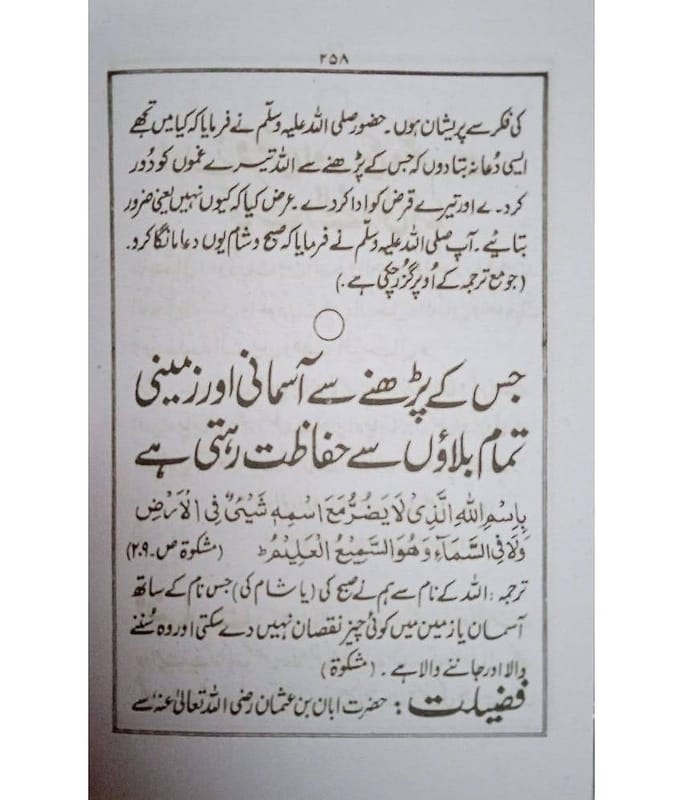 ۲۵۸
کی فکر سے پریشان ہوں۔ حضور صلی اللہ علیہ وسلّم نے فرمایا کہ کیا میں تجھے
ایسی دُعا نہ بتا دوں کہ جس کے پڑھنے سے اللہ تیرے غموں کو دُور
کر دے اور تیرے قرض کو ادا کر دے۔ عرض کیا کہ کیوں نہیں یعنی ضرور
بتائیے۔ آپ صلی اللہ علیہ وسلّم نے فرمایا کہ صبح و شام یوں دعا مانگا کرو۔
(جو مع ترجمہ کے اُوپر گزر چکی ہے۔)
جس کے پڑھنے سے آسمانی اور زمینی
تمام بلاؤں سے حفاظت رہتی ہے
بِاسْمِ اللهِ الَّذِیْ لَا یَضُرُّ مَعَ اسْمِهٖ شَیْئٌ فِی الْاَرْضِ
وَلَا فِی السَّمَآءِ وَهُوَ السَّمِیْعُ الْعَلِیْمُ ط (مشکوٰۃ ص۔۲۰۹)
ترجمہ : اللہ کے نام سے ہم نے صبح کی (یا شام کی) جس نام کے ساتھ
آسمان یا زمین میں کوئی چیز نقصان نہیں دے سکتی اور وہ سُننے
والا اور جاننے والا ہے۔ (مشکوٰۃ)
فضیلت : حضرت ابان بن عثمان رضی اللہ تعالیٰ عنہٗ سے